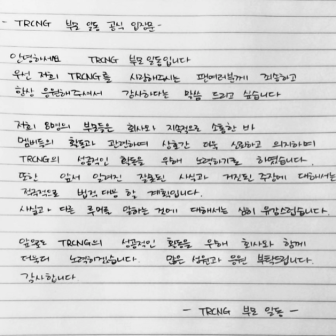 - TRCNG 부모 일동 공식 입장문 -
안녕하세요 TRCNG 부모 일동입니다
우선 저희 TRCNG를 사랑해주시는 팬여러분께 죄송하고
항상 응원해주셔서 감사하다는 말씀 드리고 싶습니다
저희 8명의 부모들은 회사와 지속적으로 소통한 바
멤버들의 활동과 관련하여 상호간 더욱 신뢰하고 의지하며
TRCNG의 성공적인 활동을 위해 노력하기로 하였습니다.
또한 앞서 알려진 잘못된 사실과 거짓된 주장에 대해서는
적극적으로 법적 대응 할 계획입니다.
사실과 다른 루머로 말하는 것에 대해서는 심히 유감스럽습니다.
앞으로 TRCNG의 성공적인 활동을 위해 회사와 함께
더욱더 노력하겠습니다. 많은 성원과 응원 부탁드립니다.
감사합니다
- TRCNG 부모 일동 -